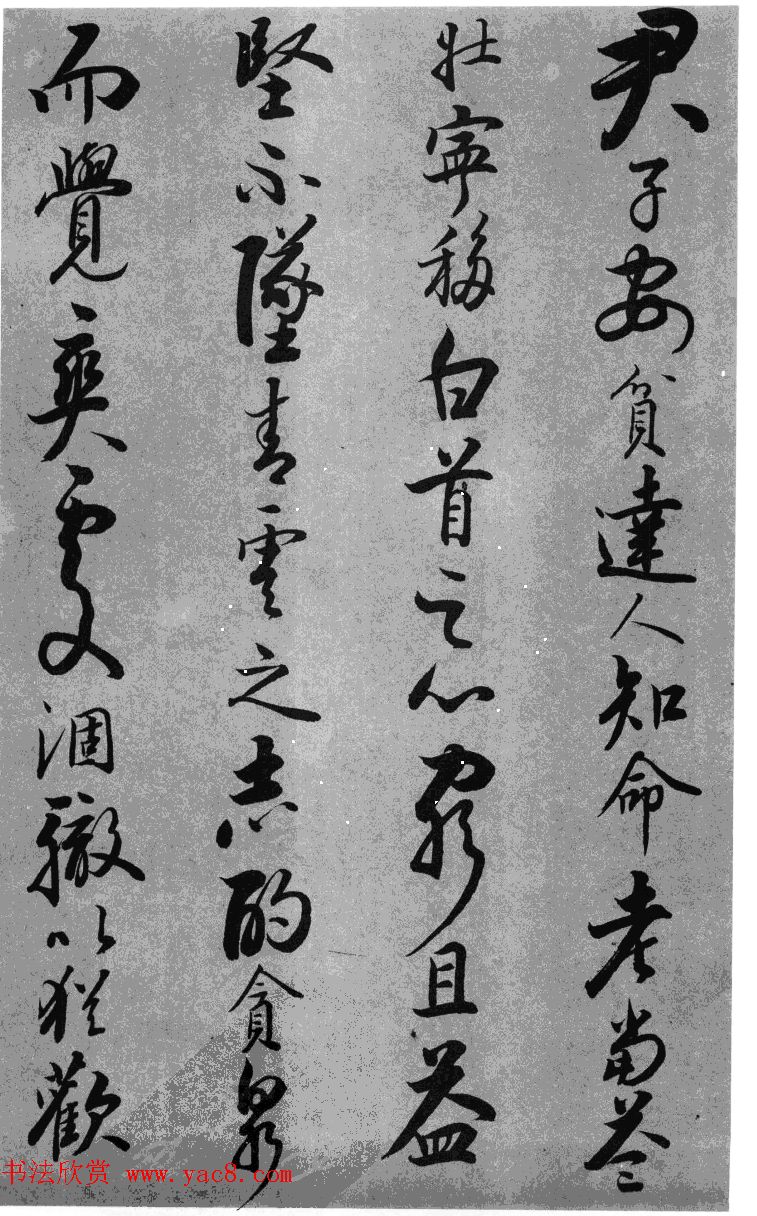 君子安貧達人知命老當益
壯寧移白首之心窮且益
堅不墜青雲之志酌貪泉
而覺爽處涸轍以猶歡
书法欣赏 www.yac8.com